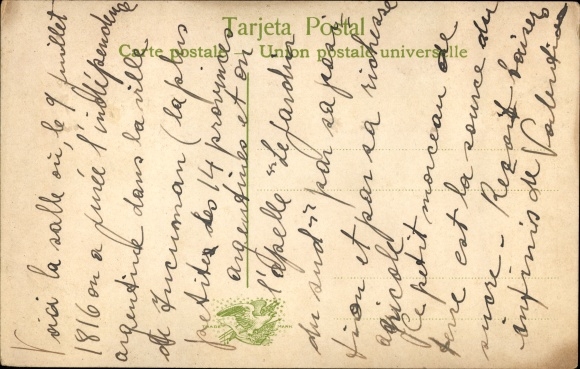 Tarjeta Postal
Carte postale - Union postale universelle
Voici la salle où, le 9 juillet
1816 on a juré l'indépendence
argentine dans la ville
de Tucuman (la plus
petite des 14 provinces
argentines et on
l'apelle "Le jardin
du sud") par sa posi-
tion et par sa richesse
agricole
Ce petit morceau de
terre est la source du
sucre - Reçoit baisers
infinis de Valentina
TRADE MARK